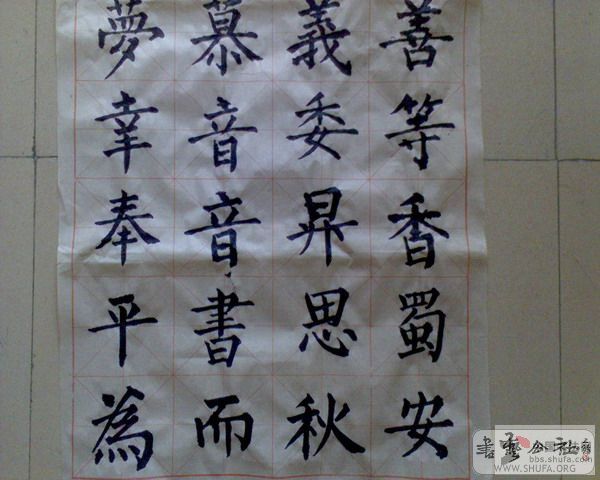 善等香蜀安
義委昇思秋
慕音音書而
夢幸奉平為
公社
bbs.shufa.com
WWW.SHUFA.ORG